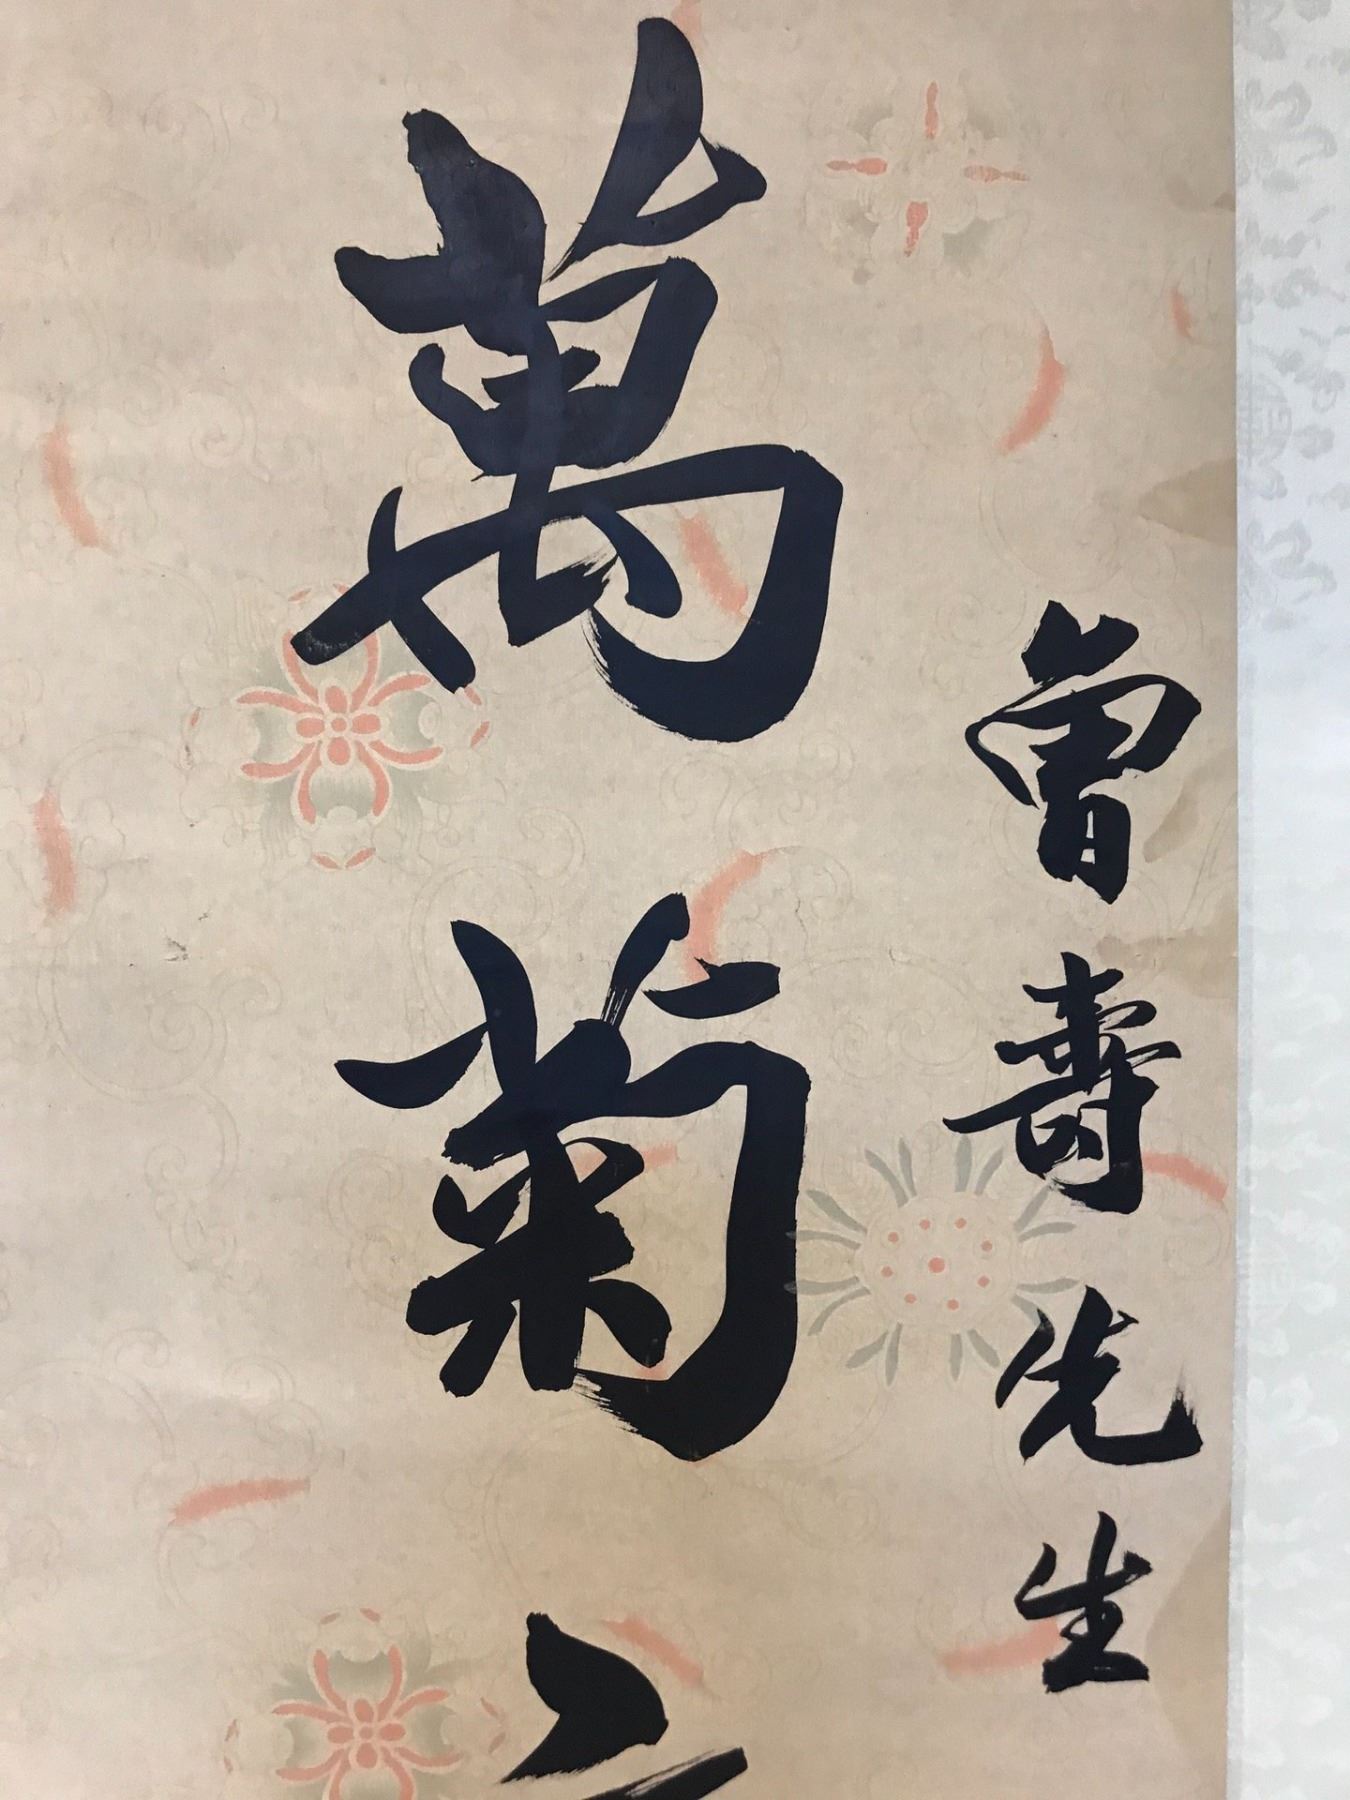 曾壽先生
萬菊